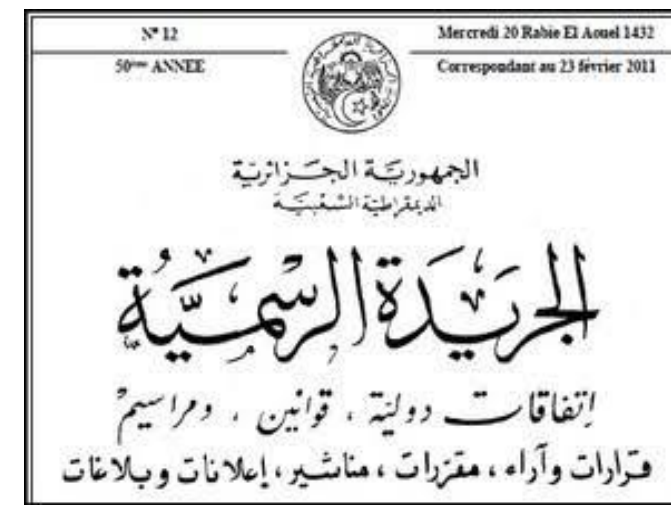 N° 12
Mercredi 20 Rabie El Aouel 1432
50ème ANNEE
Correspondant au 23 février 2011
الجمهورية الجزائرية
الديمقراطية الشعبية
الجريدة الرسمية
إتفاقات دولية ، قوانين ، ومراسيم
قرارات وآراء ، مقررات ، مناشير ، إعلانات وبلاغات